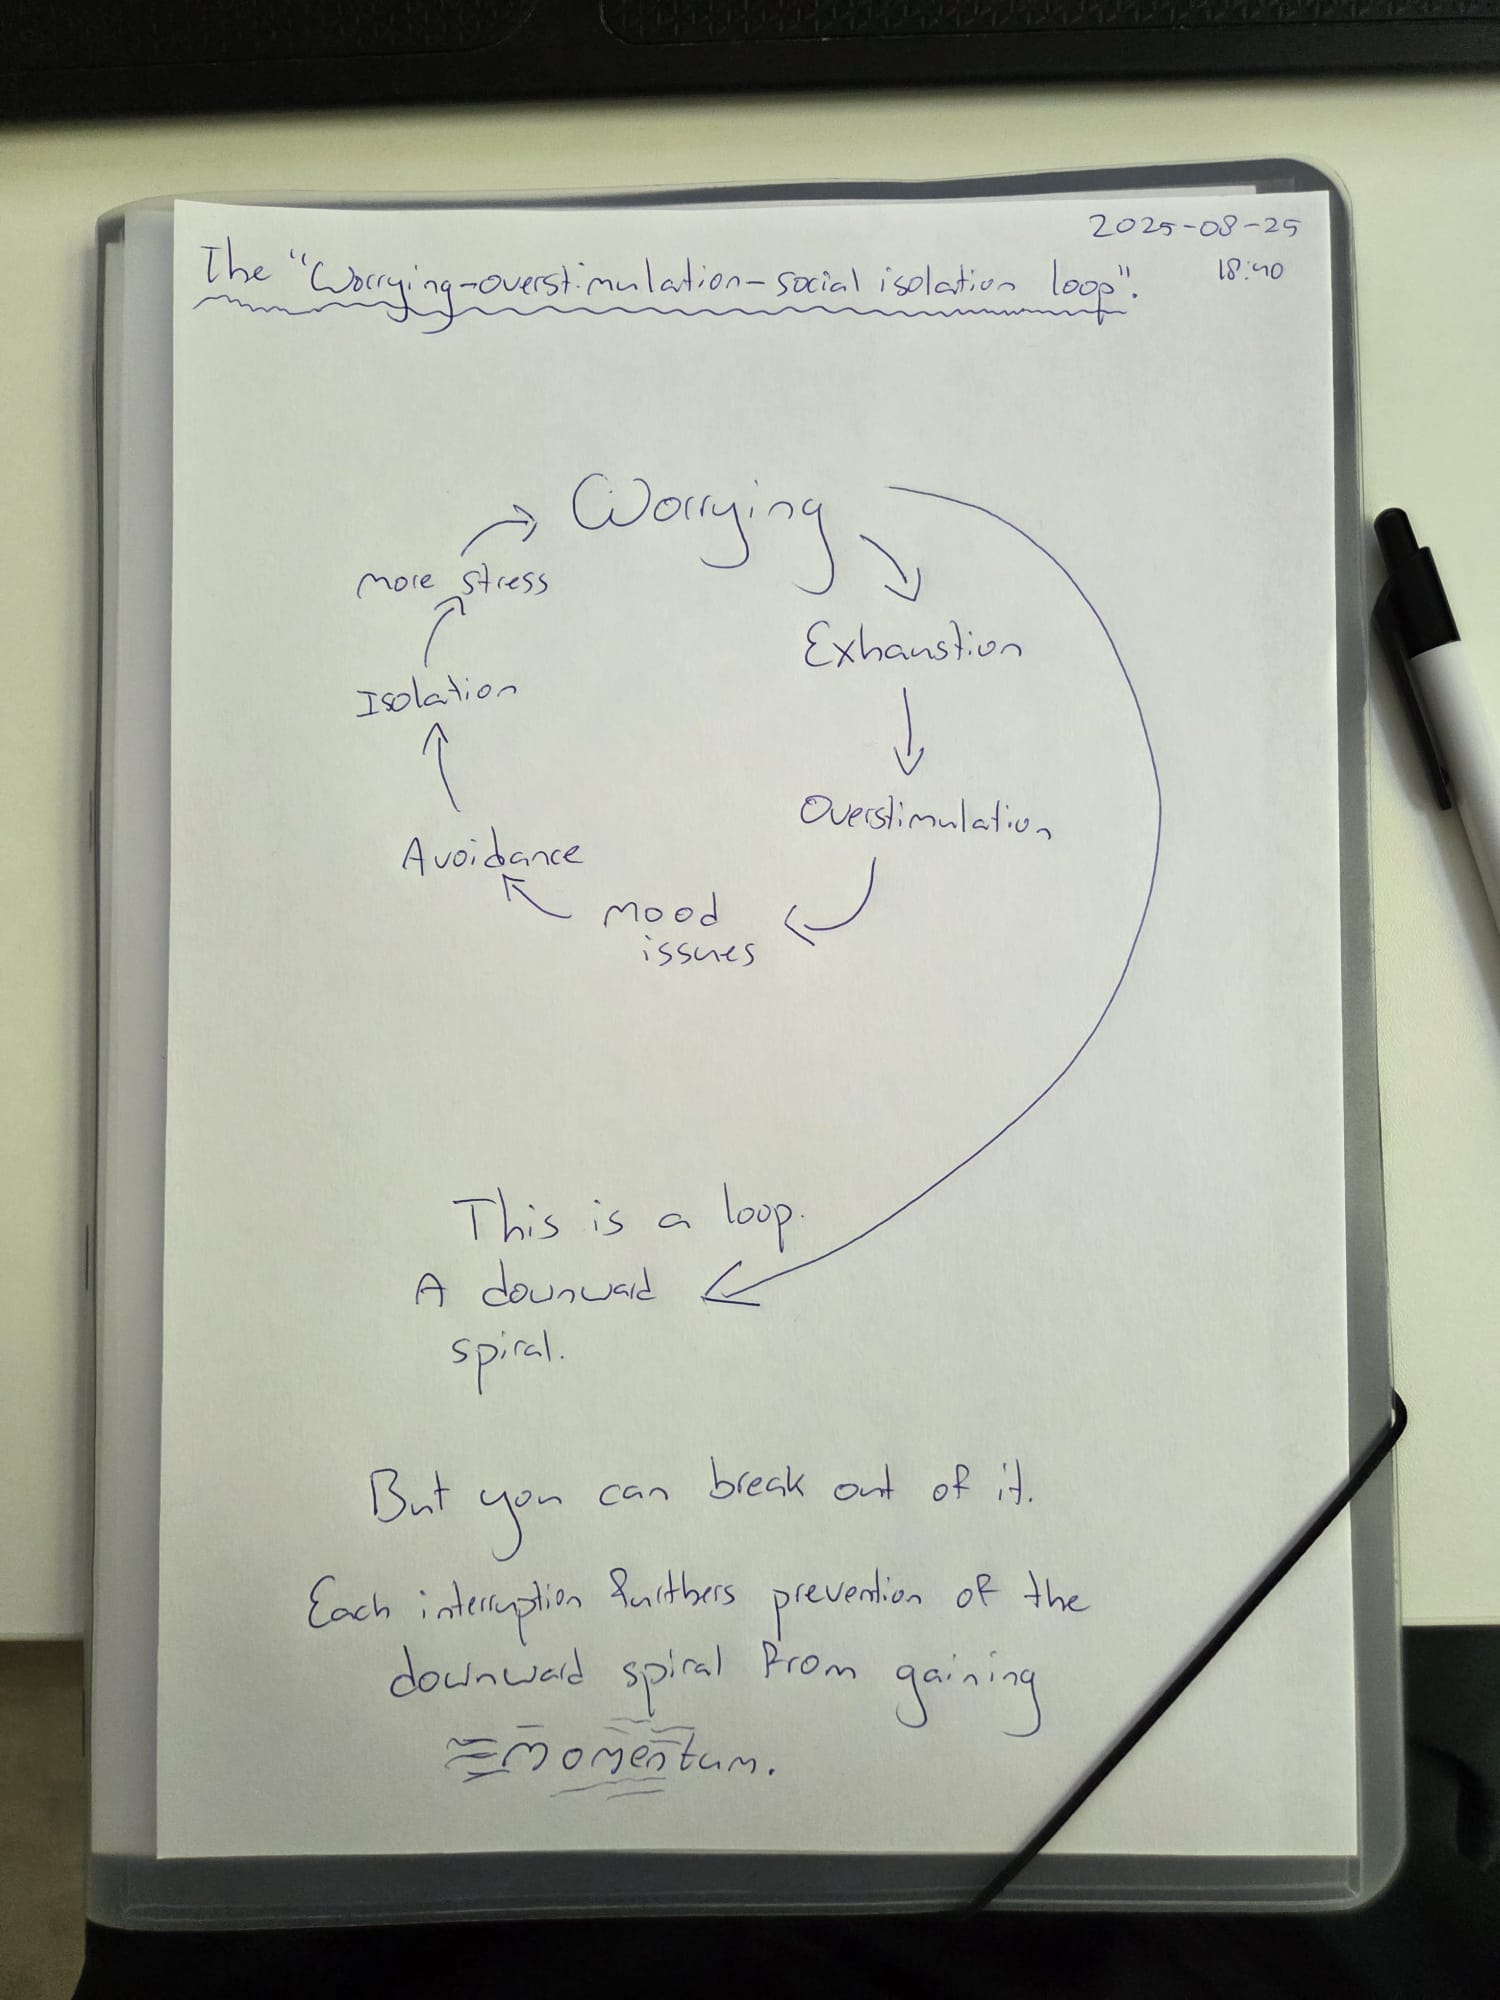 2025-08-25
The "Worrying-overstimulation-social isolation loop".
18:40
Worrying
Exhaustion
Overstimulation
mood
issues
Avoidance
Isolation
more stress
This is a loop.
A downward
spiral.
But you can break out of it.
Each interruption furthers prevention of the
downward spiral from gaining
momentum.